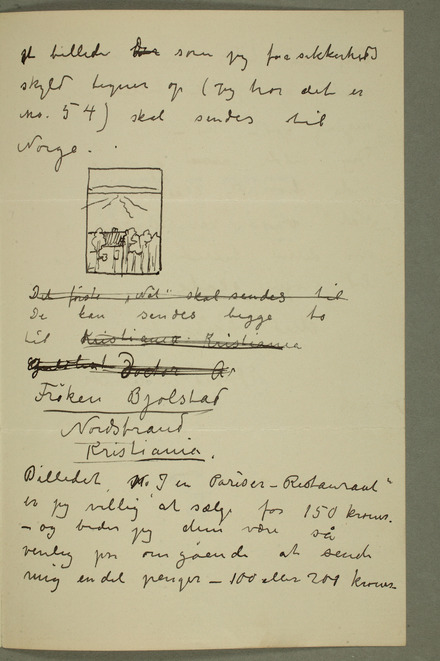 et billede som jeg for sikkerheds
skyld tegner op (jeg tror det er
no. 54) skal sendes til
Norge.
Det første „Nat“ skal sendes til
De kan sendes begge to
til Kristiania Kristiania
Doctor A
Frøken Bjølstad
Nordstrand
Kristiania.
Billedet „I en Pariser-Restaurant“
er jeg villig at sælge for 150 kroner.
– og beder jeg dem være så
venlig pr omgående at sende
mig en del penger – 100 eller 200 kroner